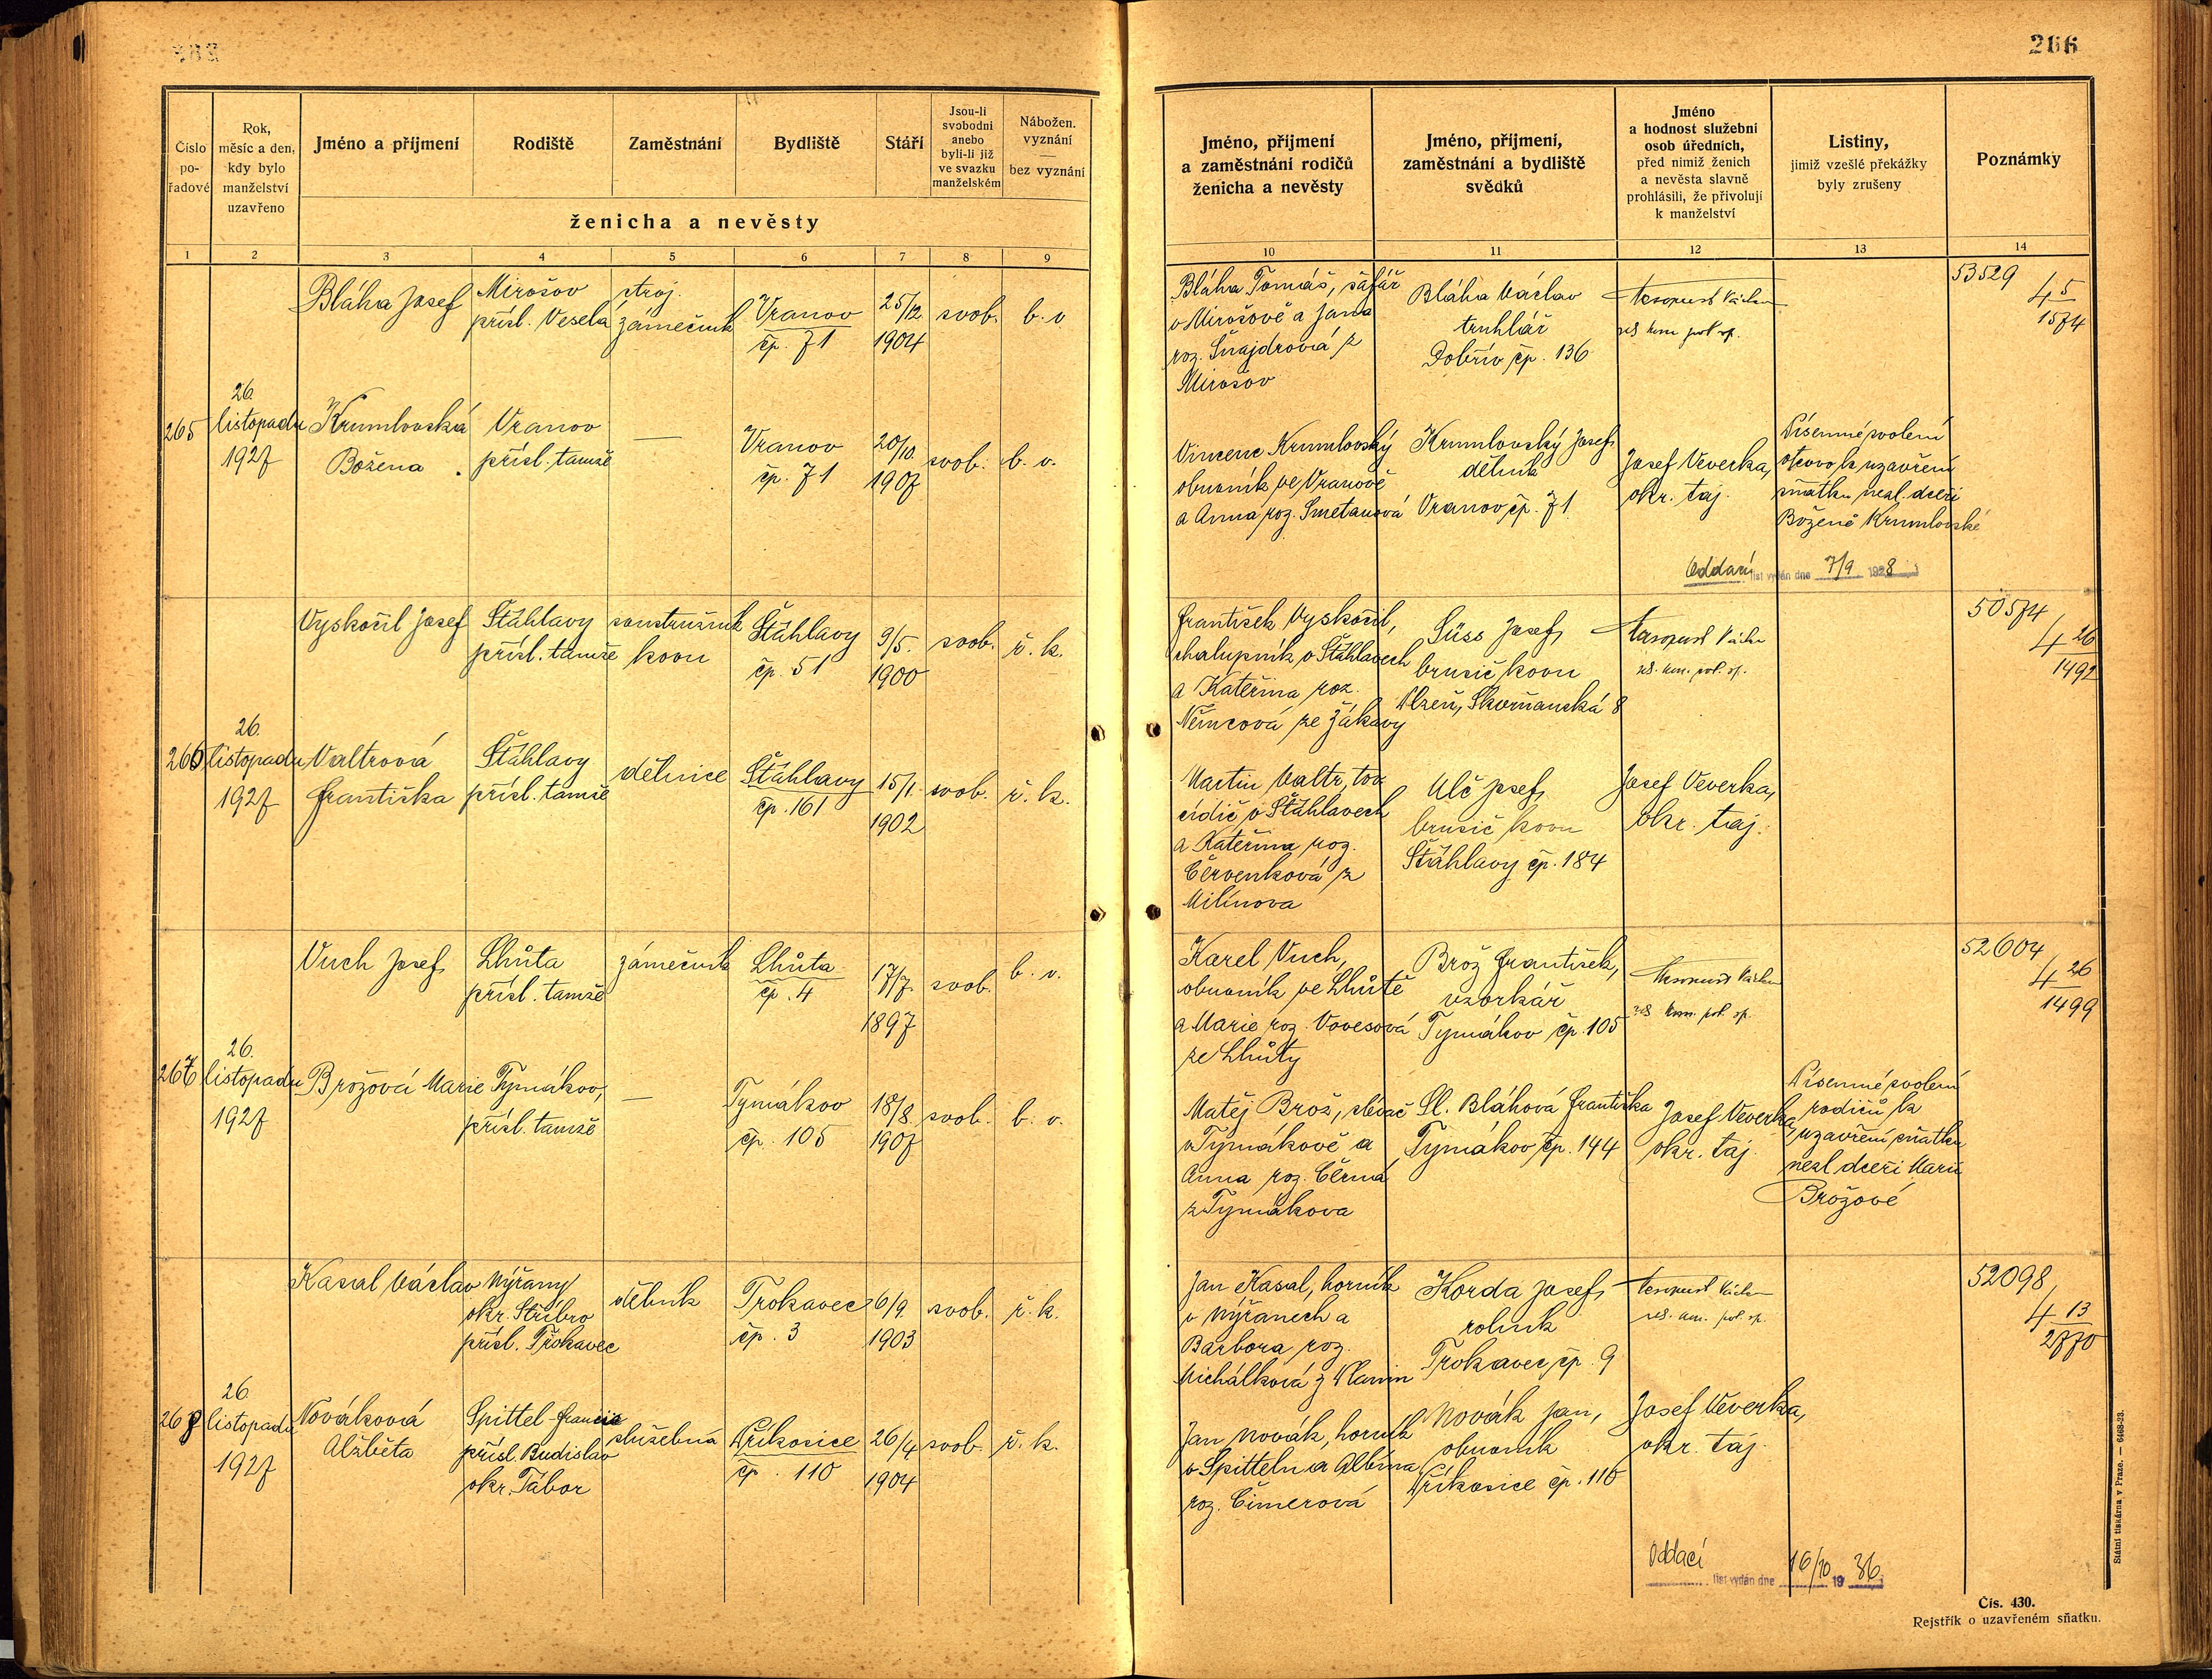 266
Číslo
po-
řadové
Rok,
měsíc a den,
kdy bylo
manželství
uzavřeno
Jméno a příjmení
Rodiště
Zaměstnání
Bydliště
Stáří
Jsou-li
svobodni
anebo
byli-li již
ve svazku
manželském
Nábožen.
vyznání
—
bez vyznání
ženicha a nevěsty
1 2 3 4 5 6 7 8 9
Jméno, příjmení
a zaměstnání rodičů
ženicha a nevěsty
Jméno, příjmení,
zaměstnání a bydliště
svědků
Jméno
a hodnost služební
osob úředních,
před nimiž ženich
a nevěsta slavně
prohlásili, že přivolují
k manželství
Listiny,
jimiž vzešlé překážky
byly zrušeny
Poznámky
10 11 12 13 14
265
26.
listopadu
1927
Bláha Josef
Mirošov
přísl. Veselá
stroj.
zámečník
Vranov
čp. 71
25/12
1904
svob.
b. v
Bláha Tomáš, šafář
v Mirošově a Jana
roz. Šnajdrová z
Mirošov
Bláha Václav
truhlář
Dobřív čp. 136
Václav
53529
4 5
1574
Krumlovská
Božena
Vranov
přísl. tamže
—
Vranov
čp. 71
20/10
1907
svob.
b. v.
Vincenc Krumlovský
obuvník ve Vranově
a Anna roz. Smetanová
Krumlovský Josef
dělník
Vranov čp. 71
Josef Veverka,
okr. taj.
Písemné svolení
otcovo k uzavření
sňatku nezl. dceři
Boženě Krumlovské
Oddací list vydán dne 7/9 1928
266
26.
listopadu
1927
Vyskočil Josef
Šťáhlavy
přísl. tamže
soustružník
kovu
Šťáhlavy
čp. 51
9/5.
1900
svob.
ř. k.
František Vyskočil,
chalupník v Šťáhlavech
a Kateřina roz.
Němcová ze Žákavy
Süss Josef
brusič kovu
Plzeň, Skvrňanská 8
Václav
50574
4 26
1492
Valtrová
Františka
Šťáhlavy
přísl. tamže
dělnice
Šťáhlavy
čp. 161
15/1.
1902
svob.
ř. k.
Martin Valtr, tov.
cídič v Šťáhlavech
a Kateřina roz.
Červenková z
Milínova
Ulč Josef
brusič kovu
Šťáhlavy čp. 184
Josef Veverka,
okr. taj.
267
26.
listopadu
1927
Vuch Josef
Lhůta
přísl. tamže
zámečník
Lhůta
čp. 4
17/7.
1897
svob.
b. v.
Karel Vuch,
obuvník ve Lhůtě
a Marie roz. Vovesová
ze Lhůty
Brož František,
vzorkář
Tymákov čp. 105
Václav
52604
4 26
1499
Brožová Marie
Tymákov,
přísl. tamže
—
Tymákov
čp. 105
18/8.
1907
svob.
b. v.
Matěj Brož, slévač
v Tymákově a
Anna roz. Černá
z Tymákova
Sl. Bláhová Františka
Tymákov čp. 144
Josef Veverka,
okr. taj.
Písemné svolení
rodičů k
uzavření sňatku
nezl. dceři Marii
Brožové
268
26.
listopadu
1927
Kasal Václav
Nýřany
okr. Stříbro
přísl. Trokavec
dělník
Trokavec
čp. 3
6/9.
1903
svob.
ř. k.
Jan Kasal, horník
v Nýřanech a
Barbora roz.
Michálková z
Korda Josef
rolník
Trokavec čp. 9
Václav
52098
4 13
2770
Nováková
Alžběta
Spittel - Francie
přísl. Budislav
okr. Tábor
služebná
Příkosice
čp. 110
26/4
1904
svob.
ř. k.
Jan Novák, horník
v Spittelu a Albína
roz. Čimerová
Novák Jan,
obuvník
Příkosice čp. 110
Josef Veverka,
okr. taj.
Oddací list vydán dne 16/10 1936
Státní tiskárna v Praze. — 6468-23.
Čís. 430.
Rejstřík o uzavřeném sňatku.